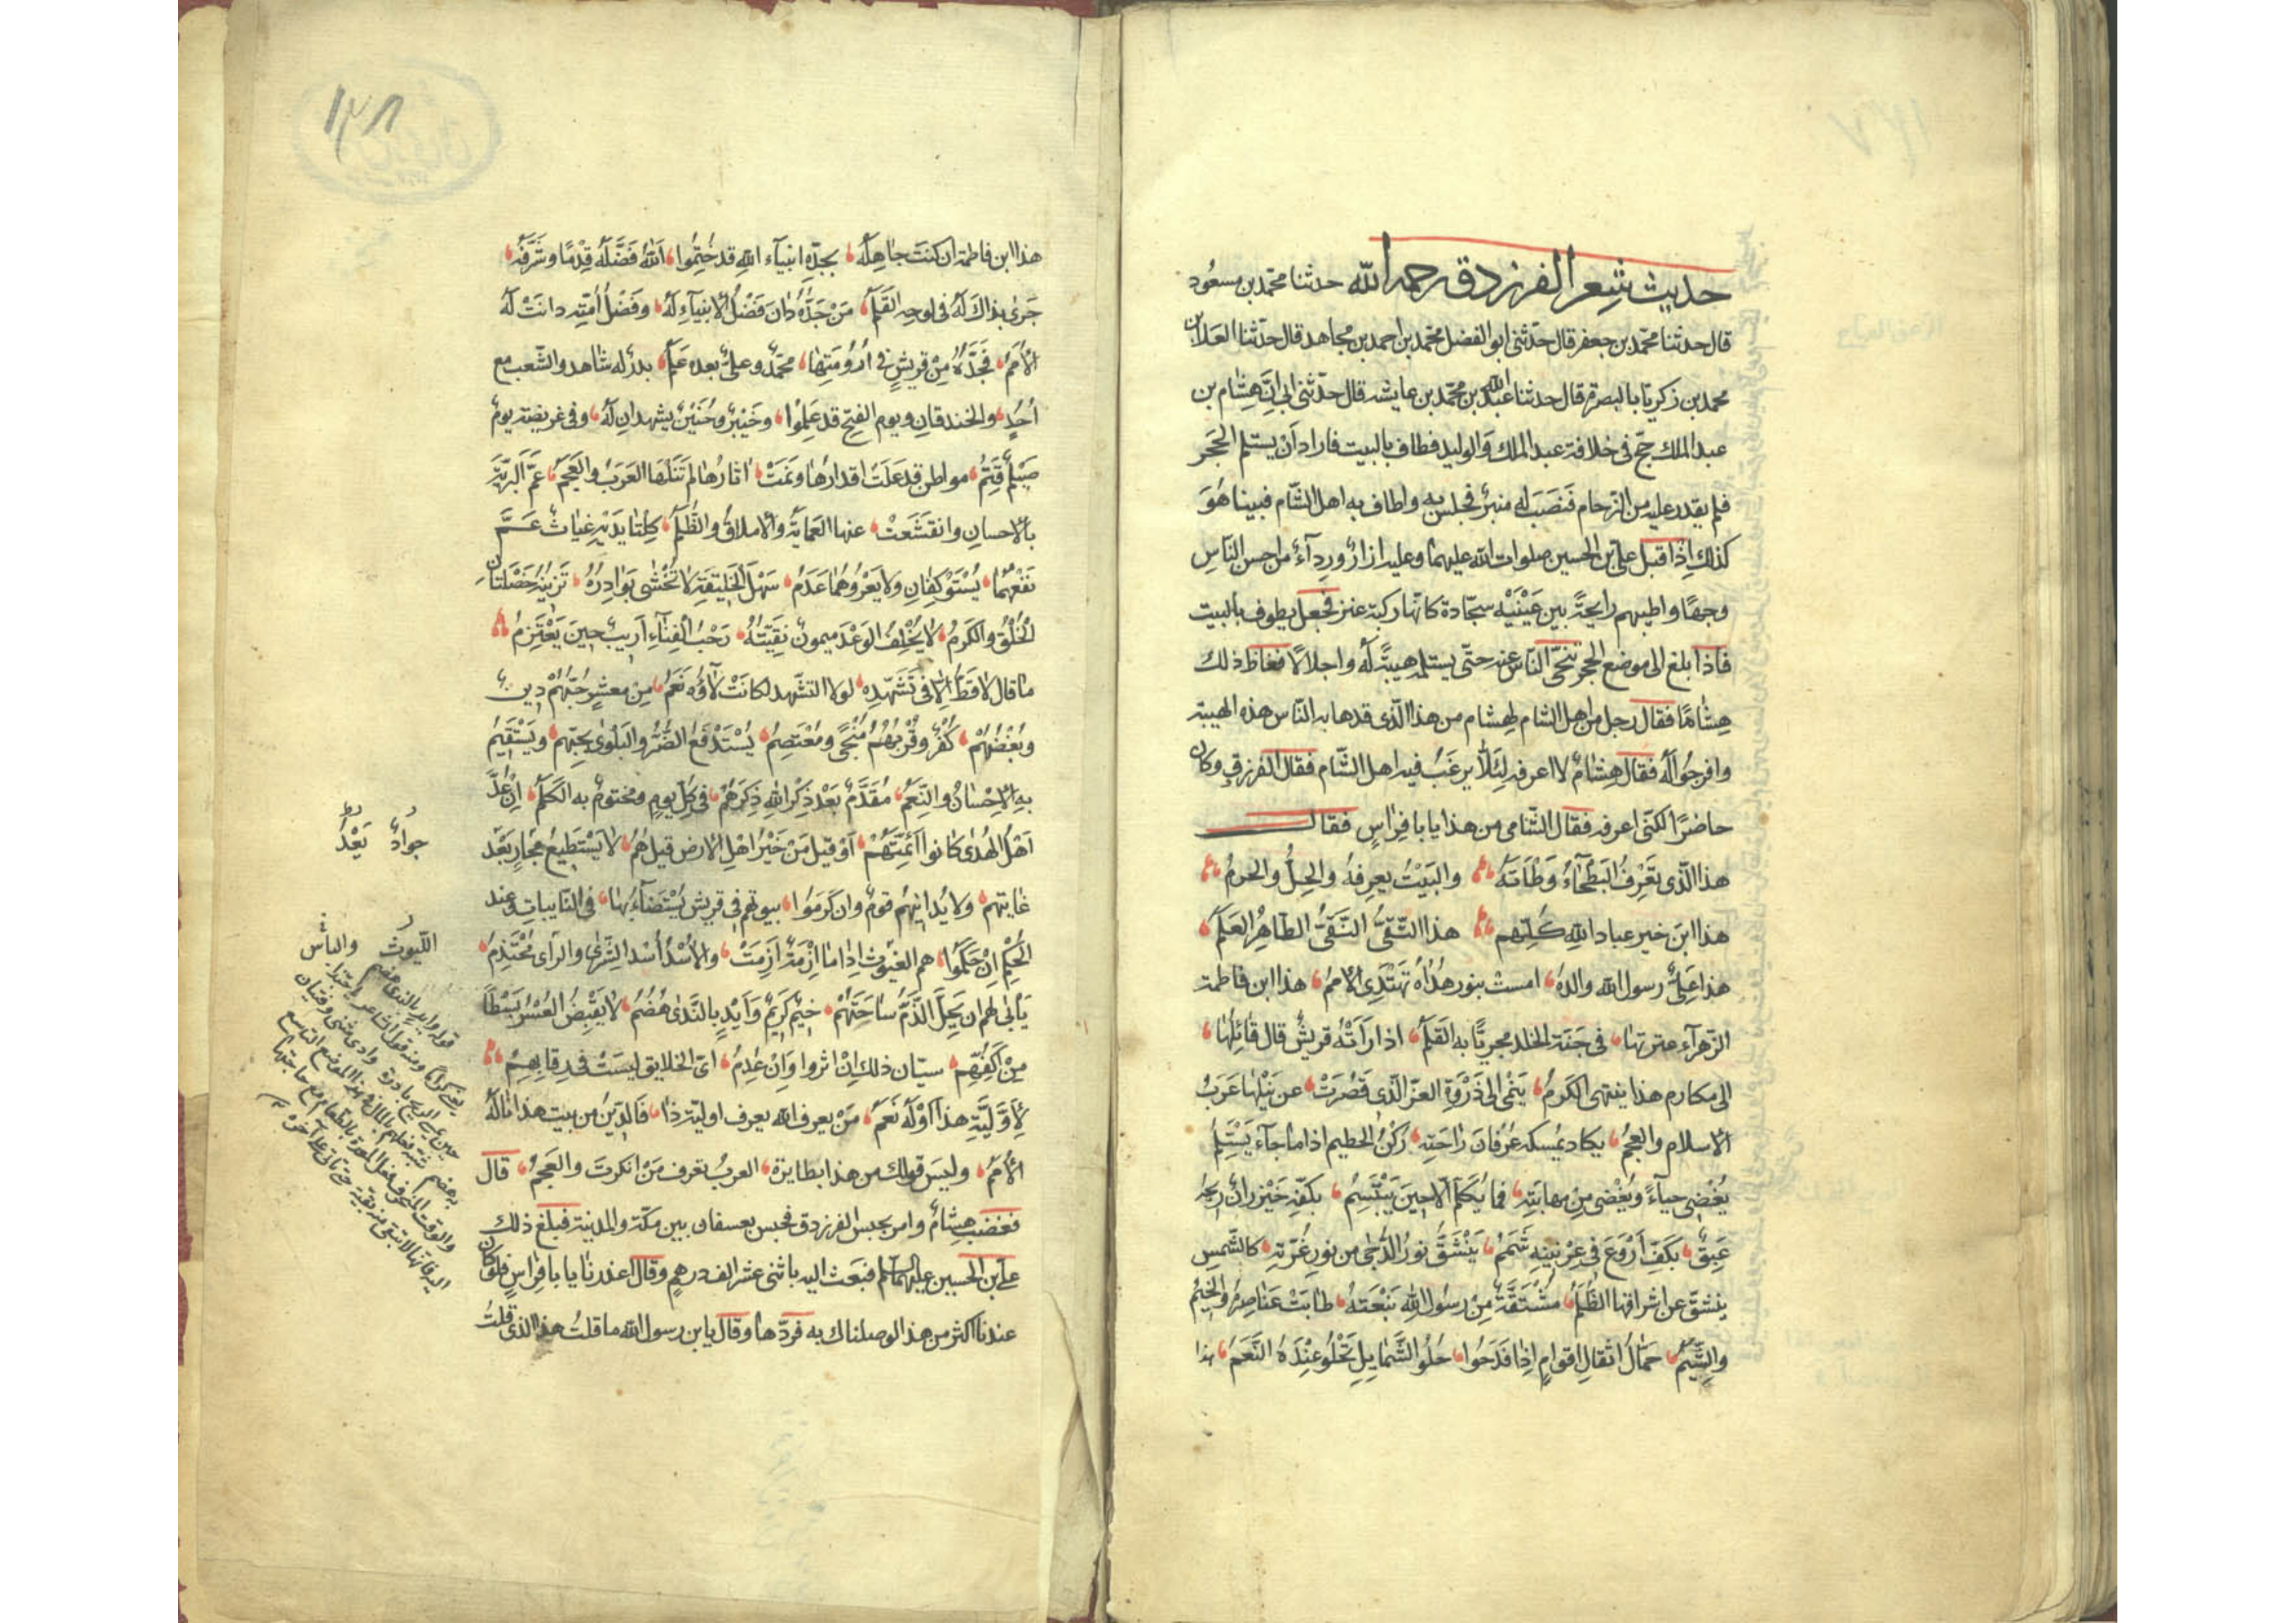 حديث شِعر الفرزدق رحمه الله حدثنا محمّد بن مسعُود
قال حدثنا محمّد بن جعفر قال حدّثنى ابو الفضل محمّد بن احمد بن مجاهد قال حدّثنا العَلابن
محمد بن زكريّا بالبصرة قال حدثنا عبد الله بن محمّد بن عايشه قال حدّثنى ابى اَنَّ هِشام بن
عبد الملك حَجّ فى خلافة عبد الملك وَالوليد فطاف بالبيت فاراد اَنْ يستلم الحَجَر
فلم يقدر عليه من الزّحام فَنَصَبَ له منبرٌ فجلس به واطاف به اهل الشّام فبينا هُوَ
كذلك اِذا قبل على بن الحسين صلوات الله عليهما وعليه ازارٌ ورِدآءٌ من احسن النّاسِ
وجهًا واطيبهم رايحةً بين عَيْنَيْه سجّادة كانّها ركبة عنز فجعل يطوف بالبيت
فاذا بلغ الى موضع الحجر تنحّى النّاس عنه حتّى يستلمه هيبةً لَهُ واجلالًا فغاظ ذلك
هِشامًا فقال رجل من اهل الشام لهِشام من هذا الّذى قد هابه النّاس هذه الهيبة
وافرجُوا لَهُ فقال هِشامٌ لا اعرفه لِئَلّا يرغَبُ فيه اهل الشّام فقال الفرزدق وكان
حاضرًا لكنّى اعرفه فقال الشّامى من هذا يا با فِراسٍ فقال
هذا الّذى تَعْرِفُ البَطْحَآءُ وَطْاَتَهُ والبَيْتُ يعرِفهُ والحِلُّ والحرمُ
هذا ابنُ خيرِ عباد اللهِ كُلّهم هذا التّقىُّ النّقىُّ الطّاهِرُ العَلَمُ
هذا عَلِىٌّ رسول الله والدهُ امست بنور هُداهُ تهتَدِى الاممُ هذا ابن فاطمة
الزّهرآء عترتها فى جَنّة الخلد مجريًّا به القَلَمُ اذا رَاَتْهُ قريشٌ قال قائِلُها
الى مكارم هذا ينتهى الكَرمُ يَنْمى الى ذَرْوَةِ العزّ الّذى قَصُرَتْ عن نَيْلِها عَرَبُ
الاسلام والعجمُ يكاد يُمسكه عرْفانَ راحَتِهِ رُكنُ الحطيم اذا ما جآءَ يَسْتَلِمُ
يُغْضى حيآءً ويُغْضى مِن مهابَتِهِ فما يُكَلَّمُ اِلّا حِينَ يَبْتَسِمُ بكَفّهِ خَيْزرانٌ ريحُهُ
عَبِقٌ بكَفّ اَرْوَعَ فى عِرْنينِهِ شَمَمُ يَنْشَقُّ نورُ الدُّجى من نورِ غُرّتِهِ كالشّمسِ
ينشقّ عن اشراقها الظُّلَمُ مُشْتَقّةٌ مِنْ رسُول اللهِ نَبْعَتهُ طابَتْ عَناصِرُهُ والخِيَمُ
والشِّيَمُ حَمّالُ اثقالِ اقوامٍ اِذا فَدَحُوا حُلُو الشَّمايِلِ تَحْلُو عِنْدَهُ النَّعَمُ هذا
هذا ابن فاطمة ان كنتَ جاهِلَهُ بجدّهِ انبيآء اللهِ قد خُتِمُوا اَللهُ فَضَّلَهُ قِدْمًا وشَرَّفَهُ
جَرىٰ بذاكَ لَهُ فى لوحِهِ القَلَمُ مَنْ جَدُّهُ دانَ فَضْلُ الانبيآءِ لَهُ وفَضْلُ اُمّتِهِ دانَتْ لَهُ
الاُمَمُ فَجَدُّهُ مِنْ قريشٍ فى اَرُومَتِها محمّدٌ وعلىٌّ بعده عَلَمُ بدرٌ له شاهد والشّعب مع
اُحُدٍ والخندقانِ ويوم الفتحِ قد عَلِمُوا وخَيْبرٌ وحُنَيْنٌ يشهدانِ لَهُ وفى غريضة يومٌ
صَيْلَمٌ قَتِمُ مواطن قد عَلَتْ اقدارُها ونَمَتْ اثارُها لم تَنَلْها العَرَبُ والعَجَمُ عَمَّ البَرِيّةَ
بالاحسانِ وانقشَعَتْ عنها العَمايَةُ والاملاقُ والظُّلَمُ كِلْتا يَدَيْهِ غِياثٌ عَــمَّ
نَفْعُهُما يُسْتَوْكِفانِ ولا يَعْرُوهُما عَدَمُ سَهْلُ الخَليقَةِ لا تُخْشى بَوادِرُهُ تَزينُهُ خَصْلتانِ
الخُلْقُ والكَرمُ لا يُخْلِفُ الوَعْدَ ميمونٌ نقيبَتُهُ رَحْبُ الفِنآءِ اَريبٌ حِينَ يَعْتَزِمُ
ما قال لا قَطُّ اِلّا فى تَشَهّدِهِ لولا التشهّد لكانَتْ لاؤُه نَعَمُ مِن معشرٍ حُبّهُمْ دين
وبُغْضُهُمْ كُفْرٌ وقُرْبُهُمُ مَنْجًى ومُعْتَصمُ يُسْتَدْفَعُ الضُّرُّ والبَلْوى بحُبِّهم ويَسْتَقيمُ
به الاِحْسانُ والنِّعَمُ مُقَدَّمٌ بَعْدَ ذِكْرِ اللهِ ذِكرهُمْ فى كلّ يومٍ ومختومٌ به الكَلِمُ اِنْ عُدَّ
اَهْلُ الهُدى كانوا اَئمّتَهُمْ اَوْ قيل مَنْ خَيْرُ اهْلِ الارض قيل هُمُ لا يَسْتَطيعُ مُجارٍ بَعْدَ
غايتهم ولا يُدانِيهمُ قومٌ وان كرمُوا بيوتهم فى قريش يُسْتَضآءُ بها فى النّايبات عند
الحُكْمِ اِنْ حَكَمُوا هم الغيوث اِذا ما اَزْمَةٌ اَزِمَتْ والاُسْدُ اُسْدُ الشّرىٰ والرّاى مُحْتَدِمُ
يَاْبى لهم اَن يَحِلَّ الذَّمُّ ساحَتَهُمْ خِيمٌ كَريمٌ وَاَيْدٍ بالنَّدى هُضُمُ لا يَقْبِضُ العُسْرُ بَسْطًا
مِنْ اَكُفِّهِم سيّان ذلك اِنْ اثروا وَاِنْ عُدِمُ اىّ الخلايق ليسَتْ فى رِقابِهِمُ
لِاَوَّليَّةِ هذا اَوْ لَهُ نَعَمُ مَنْ يعرف الله يعرف اوليّة ذا فَالدّينُ من بيت هذا نالَهُ
الاُمَمُ وليسَ قولك من هذا بضايره العربُ تعرف مَنْ انكرتَ والعَجمُ قال
فغضبَ هِشامٌ وامر بحبس الفرزدق فحبس بعسفان بين مكّة والمدينة فبلغ ذلك
على بن الحسين عليهما السلم فبَعَث اليه باثنى عشر الف درهم وقال اعذرنا يا با فِراسٍ فلو كان
عندنا اكثر من هذا لوصلناك به فردّها وقال يا بن رسول الله ما قلتُ هذا الذى قلتُ
جوادٌ بُعْدَ
اللّيوث والبأس
١٣٨